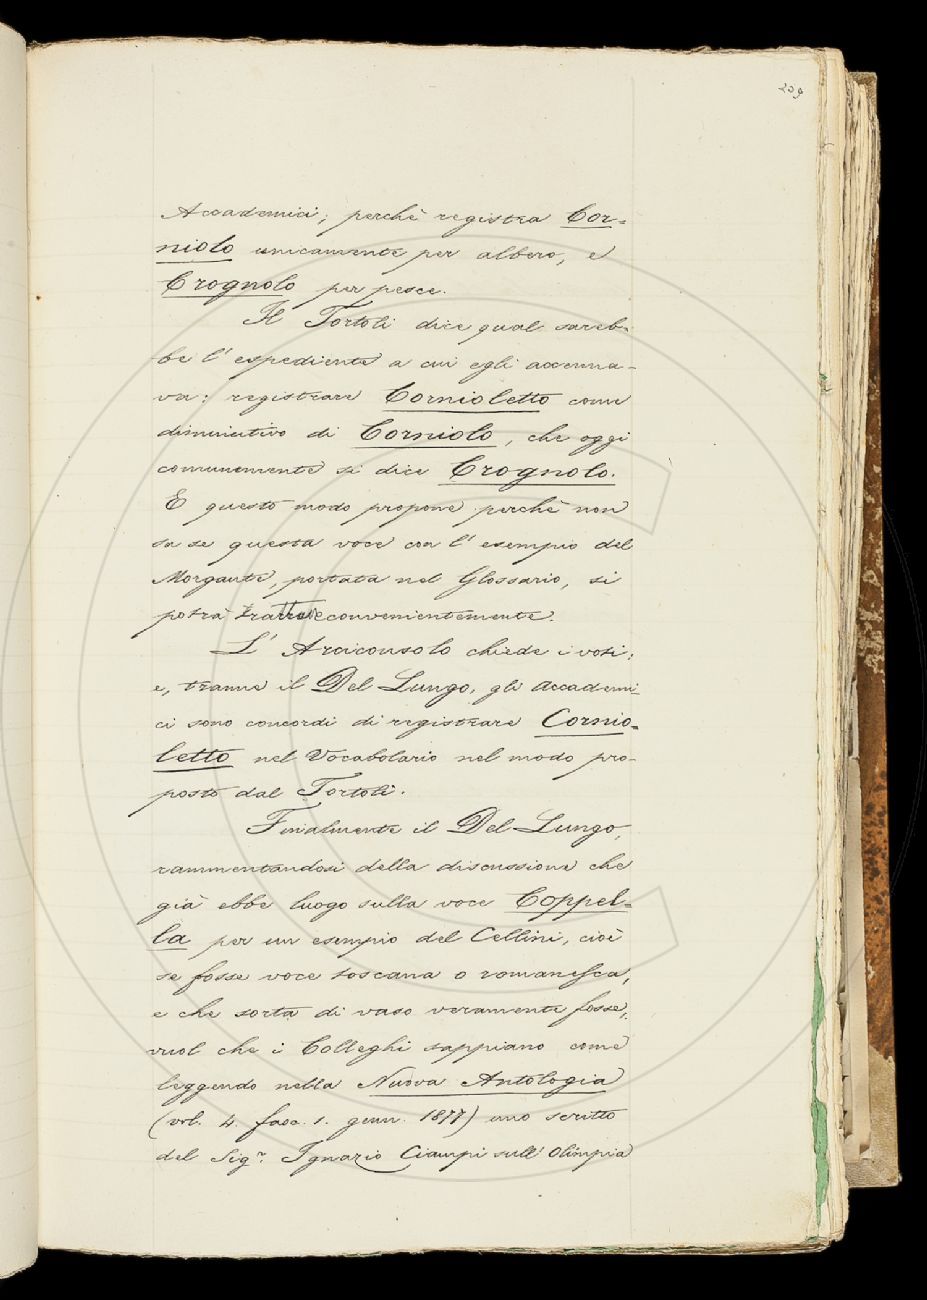 209
Accademici; perchè registra Cor-
niolo unicamente per albero, e
Crognolo per pesce.
Il Tortoli dice qual sareb-
be l'espediente a cui egli accenna-
va: registrare Cornioletto come
diminutivo di Corniolo, che oggi
comunemente si dice Crognolo.
E questo modo propone perchè non
sa se questa voce con l'esempio del
Morgante, portata nel Glossario, si
potrà trattare convenientemente.
L'Arciconsolo chiede i voti;
e, tranne il Del Lungo, gli Accademi-
ci sono concordi di registrare Cornio-
letto nel Vocabolario nel modo pro-
posto dal Tortoli.
Finalmente il Del Lungo,
rammentandosi della discussione che
già ebbe luogo sulla voce Coppel-
la per un esempio del Cellini, cioè
se fosse voce toscana o romanesca,
e che sorta di vaso veramente fosse,
vuol che i Colleghi sappiano come
leggendo nella Nuova Antologia
(vol. 4. fasc. 1. genn. 1877) uno scritto
del Sigr. Ignazio Ciampi sull'Olimpia